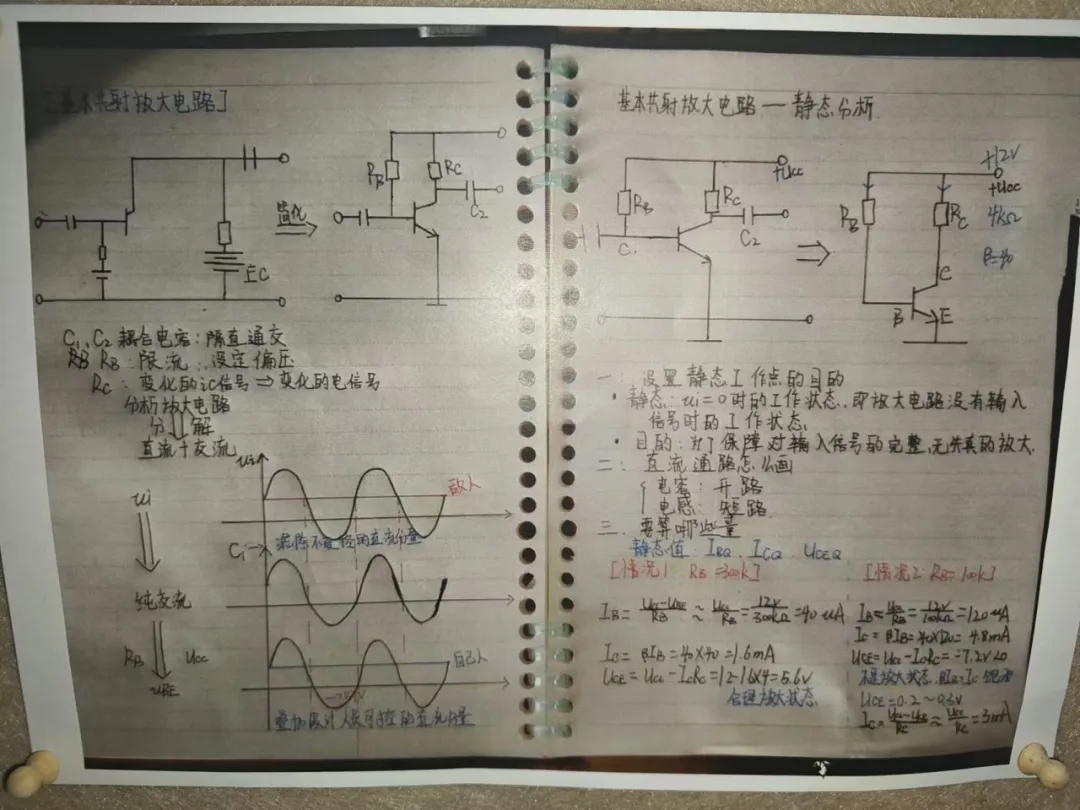 [基本共射放大电路]
RB
RC
C2
简化
EC
C1、C2 耦合电容：隔直通交
RB RB：限流，设定偏压
RC：变化的ic信号⇒变化的电信号
分析放大电路
分 解
直流+交流
ui
敌人
滤除不
的直流分量
Ci→
ui
纯交流
RB UCC
uBE
自己人
叠加设计人员可控的直流分量
基本共射放大电路—静态分析
+UCC
RB
RC
C2
C1
+12V
+UCC
RB
RC
4kΩ
β=40
C
B
E
一 设置静态工作点的目的
·静态：ui=0时的工作状态，即放大电路没有输入
信号时的工作状态
·目的：为了保障对输入信号的完整、无失真的放大.
二：直流通路怎么画
{电容：开路
电感：短路
三、要算哪些量
静态值：IBQ、ICQ、UCEQ
[情况1 RB=300k]
IB=(UCC-UBE)/RB≈UCC/RB=12V/300kΩ=40uA
IC=βIB=40×40=1.6mA
UCE=UCC-ICRC=12-1.6×4=5.6V
合理放大状态
[情况2 RB=100k]
IB=UCC/RB=12V/100kΩ=120uA
IC=βIB=40×120=4.8mA
UCE=UCC-ICRC=-7.2V<0
放大状态，βIB≠IC 饱和
UCE=0.2~0.3V
IC=(UCC-UCE)/RC≈UCC/RC=3mA